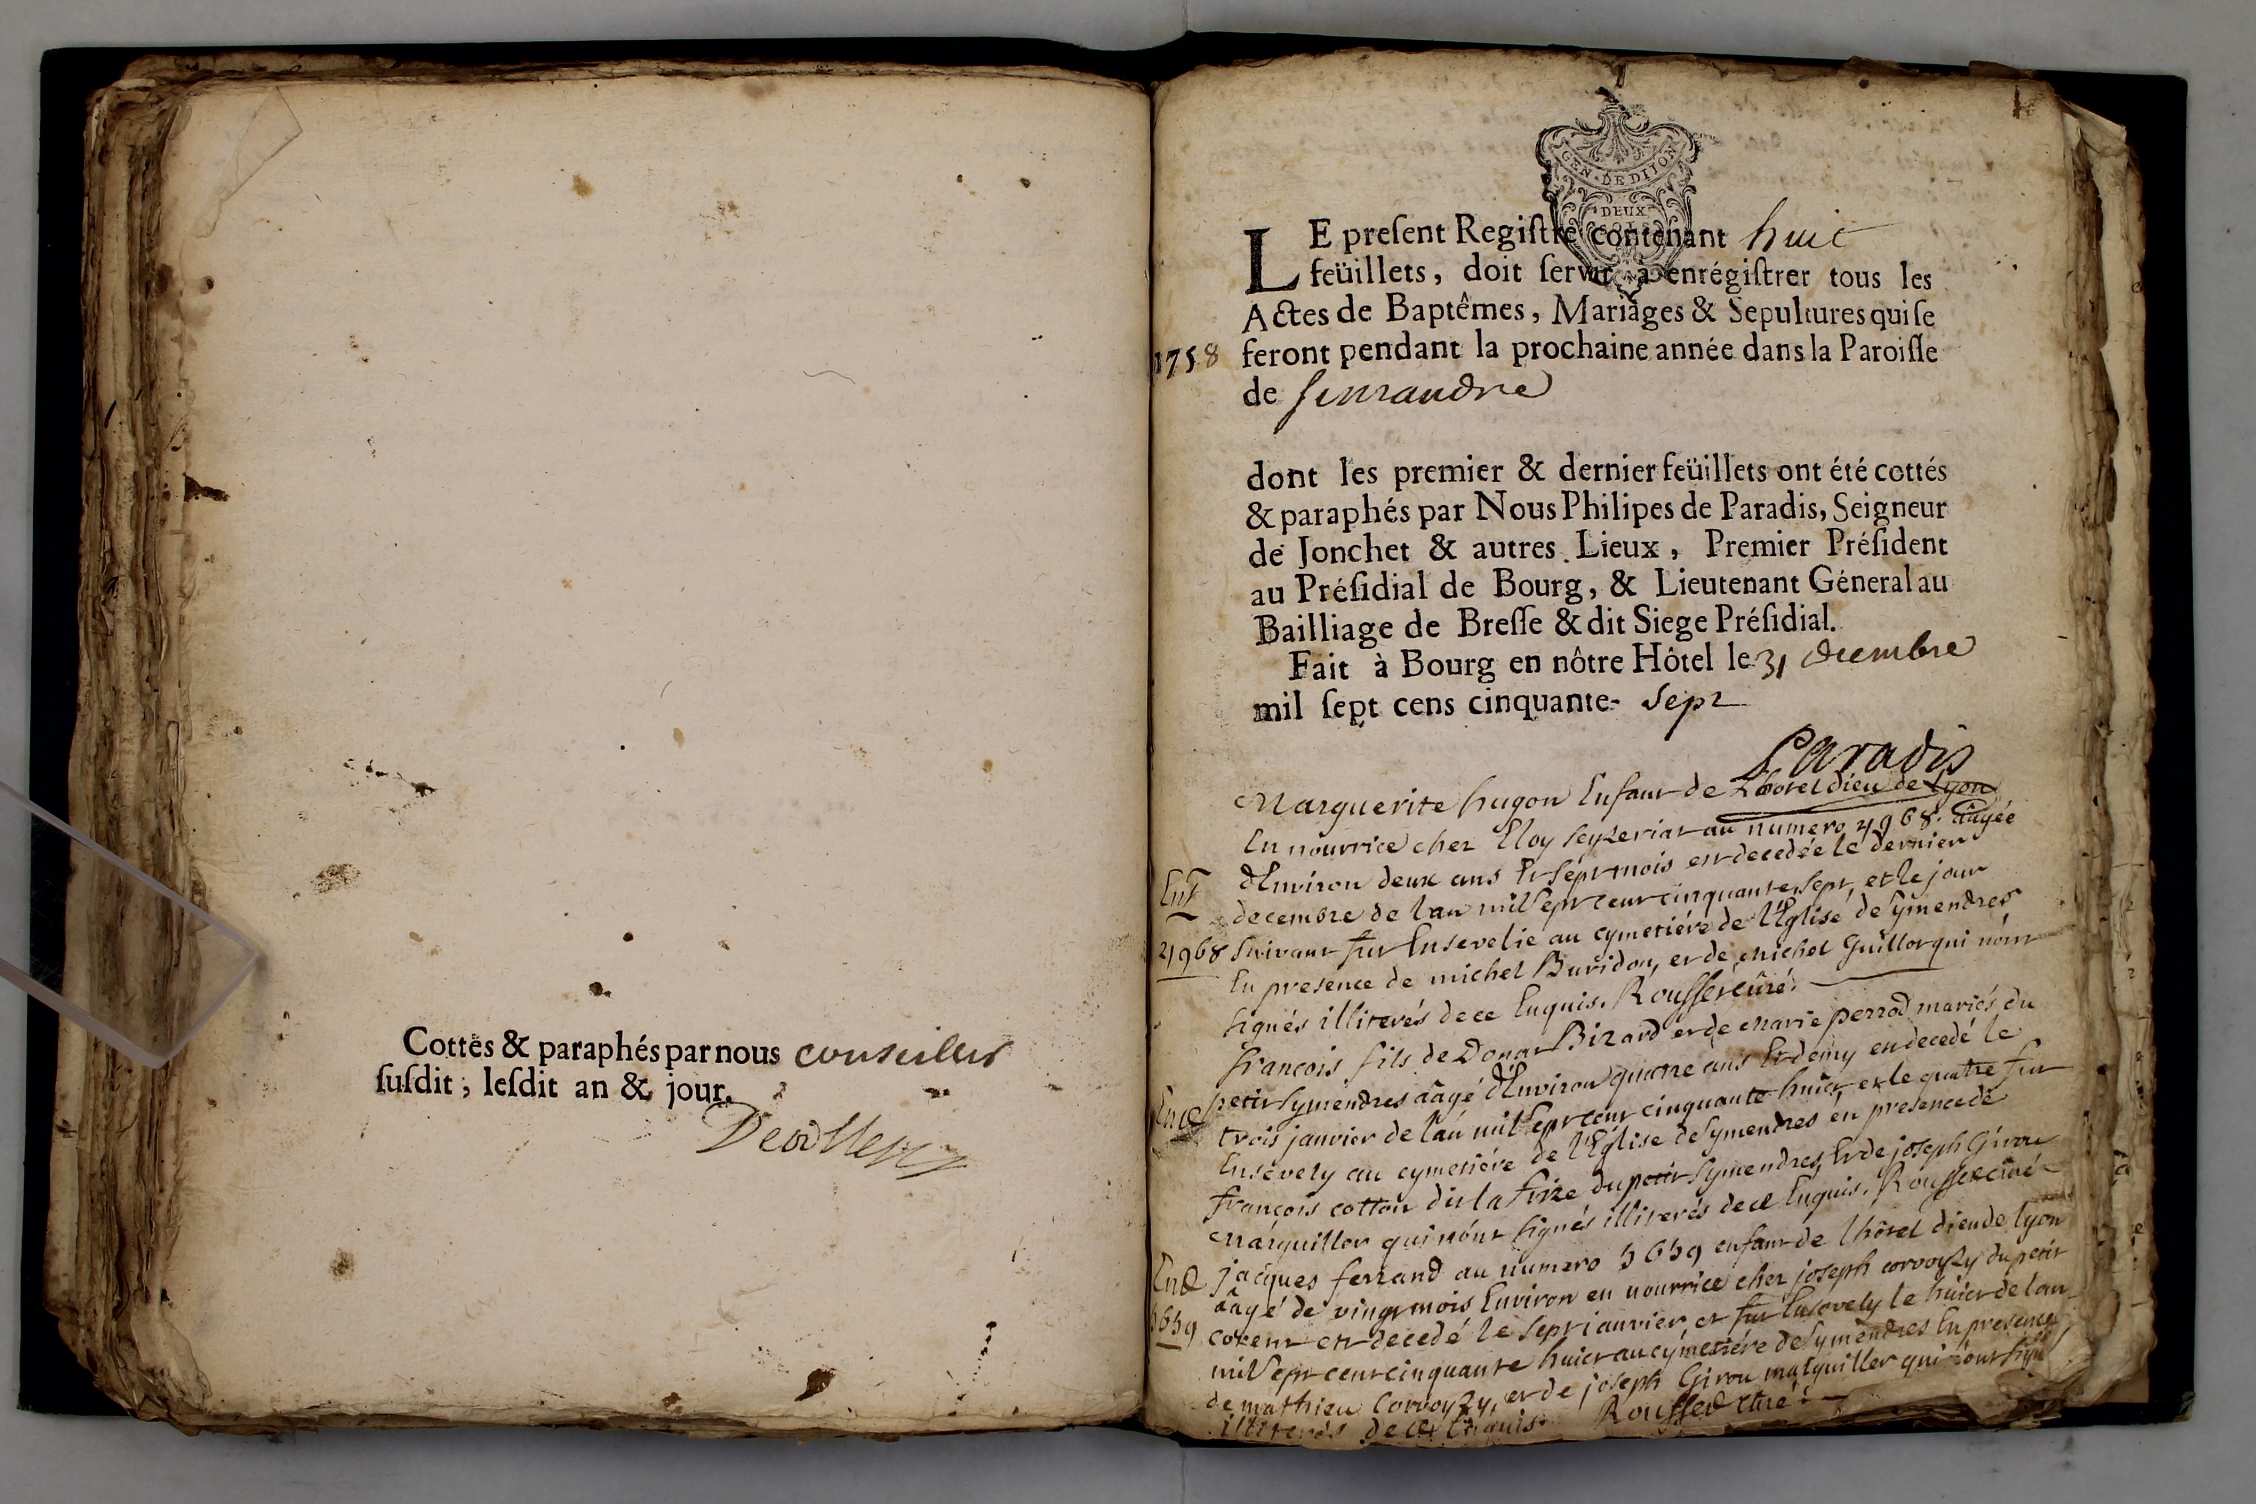 Cottés & paraphés par nous conseiller
susdit, lesdit an & jour.
GEN · DE DIJON
DEUX
LE present Registre contenant huit
feüillets, doit servir à enrégistrer tous les
Actes de Baptêmes, Mariages & Sepultures qui se
1758 feront pendant la prochaine année dans la Paroisse
de simandre
dont les premier & dernier feüillets ont été cottés
& paraphés par Nous Philipes de Paradis, Seigneur
de Jonchet & autres Lieux, Premier Président
au Présidial de Bourg, & Lieutenant Géneral au
Bailliage de Bresse & dit Siege Présidial.
Fait à Bourg en nôtre Hôtel le 31 decembre
mil sept cens cinquante- sept
Paradis
Marguerite hugon Enfant de Lhotel dieu de Lyon
En nourrice chez Eloy seyzeriat au numero 4968. aagée
Enf dEnviron deux ans Et sept mois est decedée le dernier
decembre de lan mil sept cent cinquante sept, et le jour
4968 suivant fut Ensevelie au cymetiére de lEglise de Symendres
En presence de michel Buridon, et de michel Guillot qui n'ont
signés illiterés de ce Enquis. Rousset curé.
francois fils de Donat Bizard et de Marie perrod mariés du
petit Symendres aagé dEnviron quatre ans Et demy en decedé le
trois janvier de lan mil sept cent cinquante huict et le quatre fut
Ensevely au cymetiére de l'Eglise de Symendres en presence de
francois cotton dit la frize du petit Symendres Et de joseph Girou
Marguiller qui n'ont signés illiterés de ce Enquis. Rousset curé
jacques ferrand au numero 5659 enfant de lhôtel dieu de lyon
aagé de vingt mois Environ en nourrice chez joseph corvoyzy du petit
5659 corent est decedé le sept janvier et fut Ensevely le huict de lan
mil sept cent cinquante huict au cymetiére de Symendres En presence
de mathieu Corvoyzy, et de joseph Girou marguiller qui n'ont signé
illiterés de ce Enquis. Rousset curé.